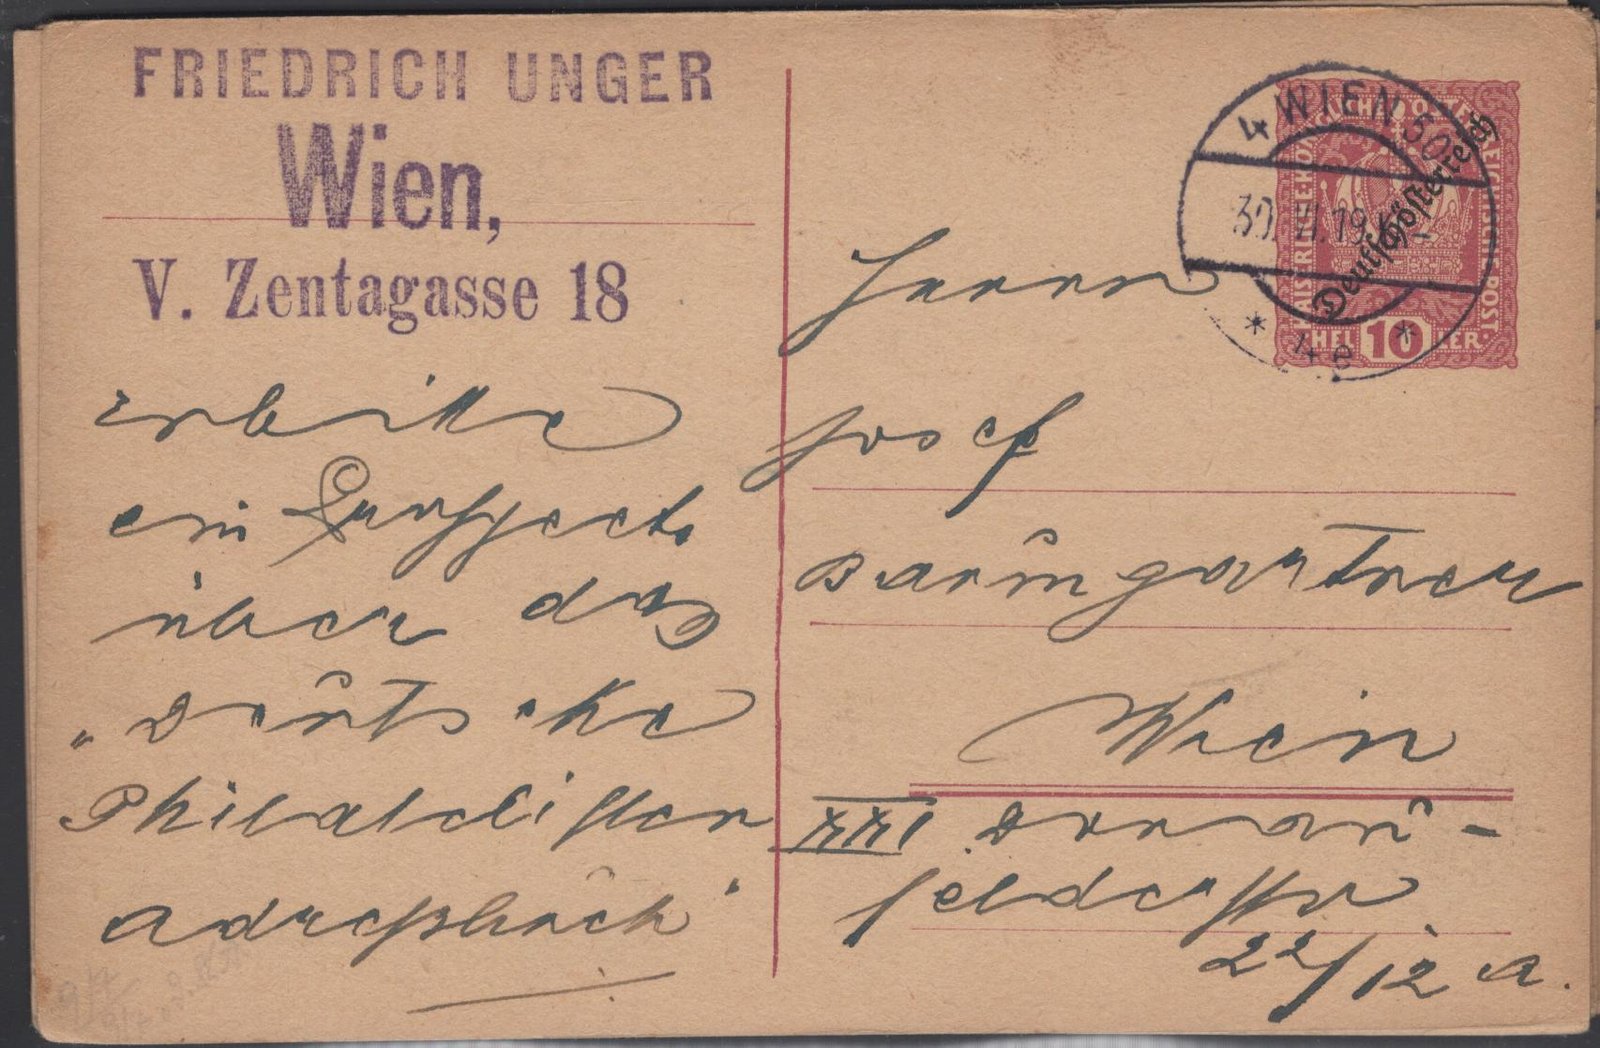 FRIEDRICH UNGER
Wien,
V. Zentagasse 18
erbitte
ein Prospect
über das
„Deutsche
Philatelisten
Adreßbuch"
4 WIEN 50
30. VI. 19
* 4e *
KAISERLICHE KÖNIGLICHE ÖSTERREICHISCHE POST
Deutschösterreich
HELLER
10
Herrn
Josef
Baumgartner
Wien
XXI Donau-
felderstr
22/12 a.